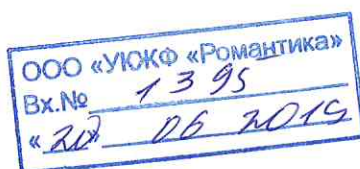 ООО «УЮКФ «Романтика»
Вх.№ 1395
«20» 06 2019